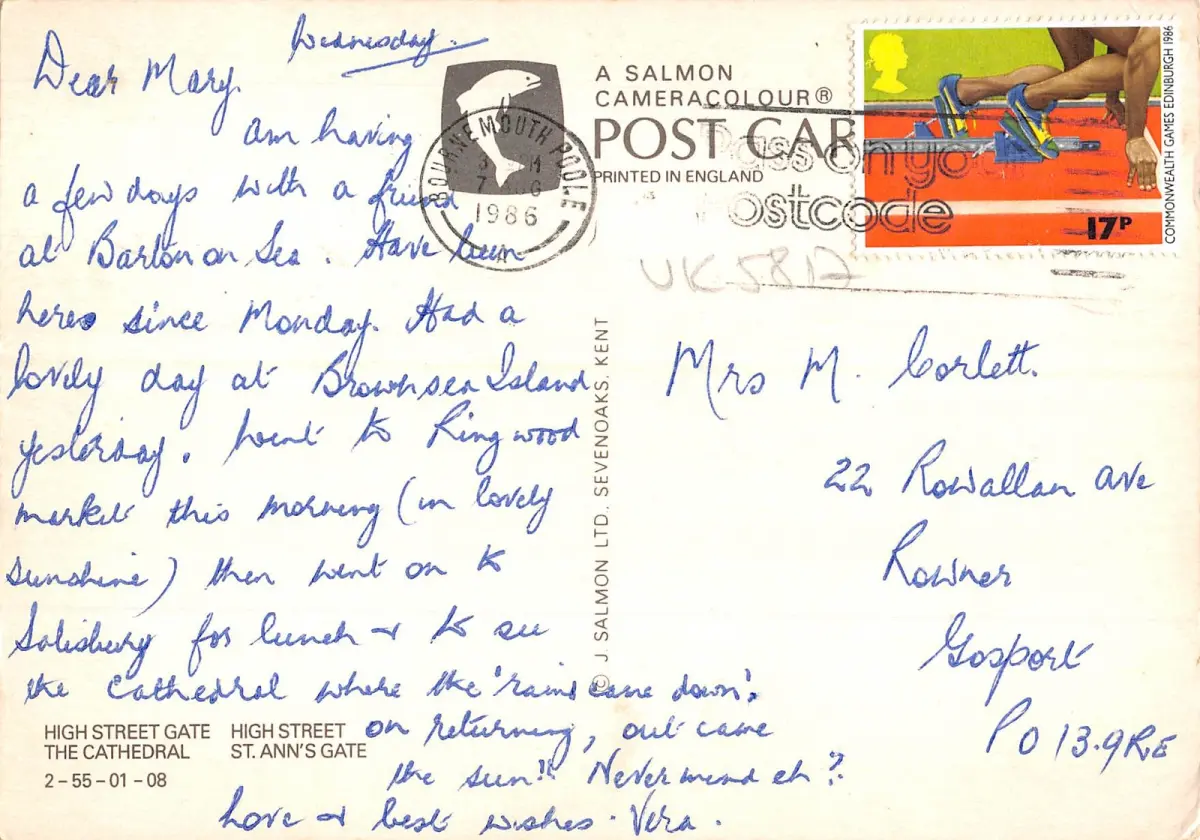 Wednesday.
Dear Mary,
am having
a few days with a friend
at Barton on Sea. Have been
here since Monday. Had a
lovely day at Brownsea Island
yesterday. Went to Ringwood
market this morning (in lovely
sunshine) then went on to
Salisbury for lunch & to see
the Cathedral where the 'rains came down'.
on returning, out came
the sun!! Never mind eh?
Love & best wishes. Vera.
HIGH STREET GATE HIGH STREET
THE CATHEDRAL ST. ANN'S GATE
2-55-01-08
A SALMON
CAMERACOLOUR®
POST CAR
PRINTED IN ENGLAND
BOURNEMOUTH POOLE
1986
A
Pass on your
Postcode
COMMONWEALTH GAMES EDINBURGH 1986
17P
UK 5817
© J. SALMON LTD. SEVENOAKS. KENT
Mrs M. Corlett.
22 Rowallan Ave
Rowner
Gosport
PO13.9RE